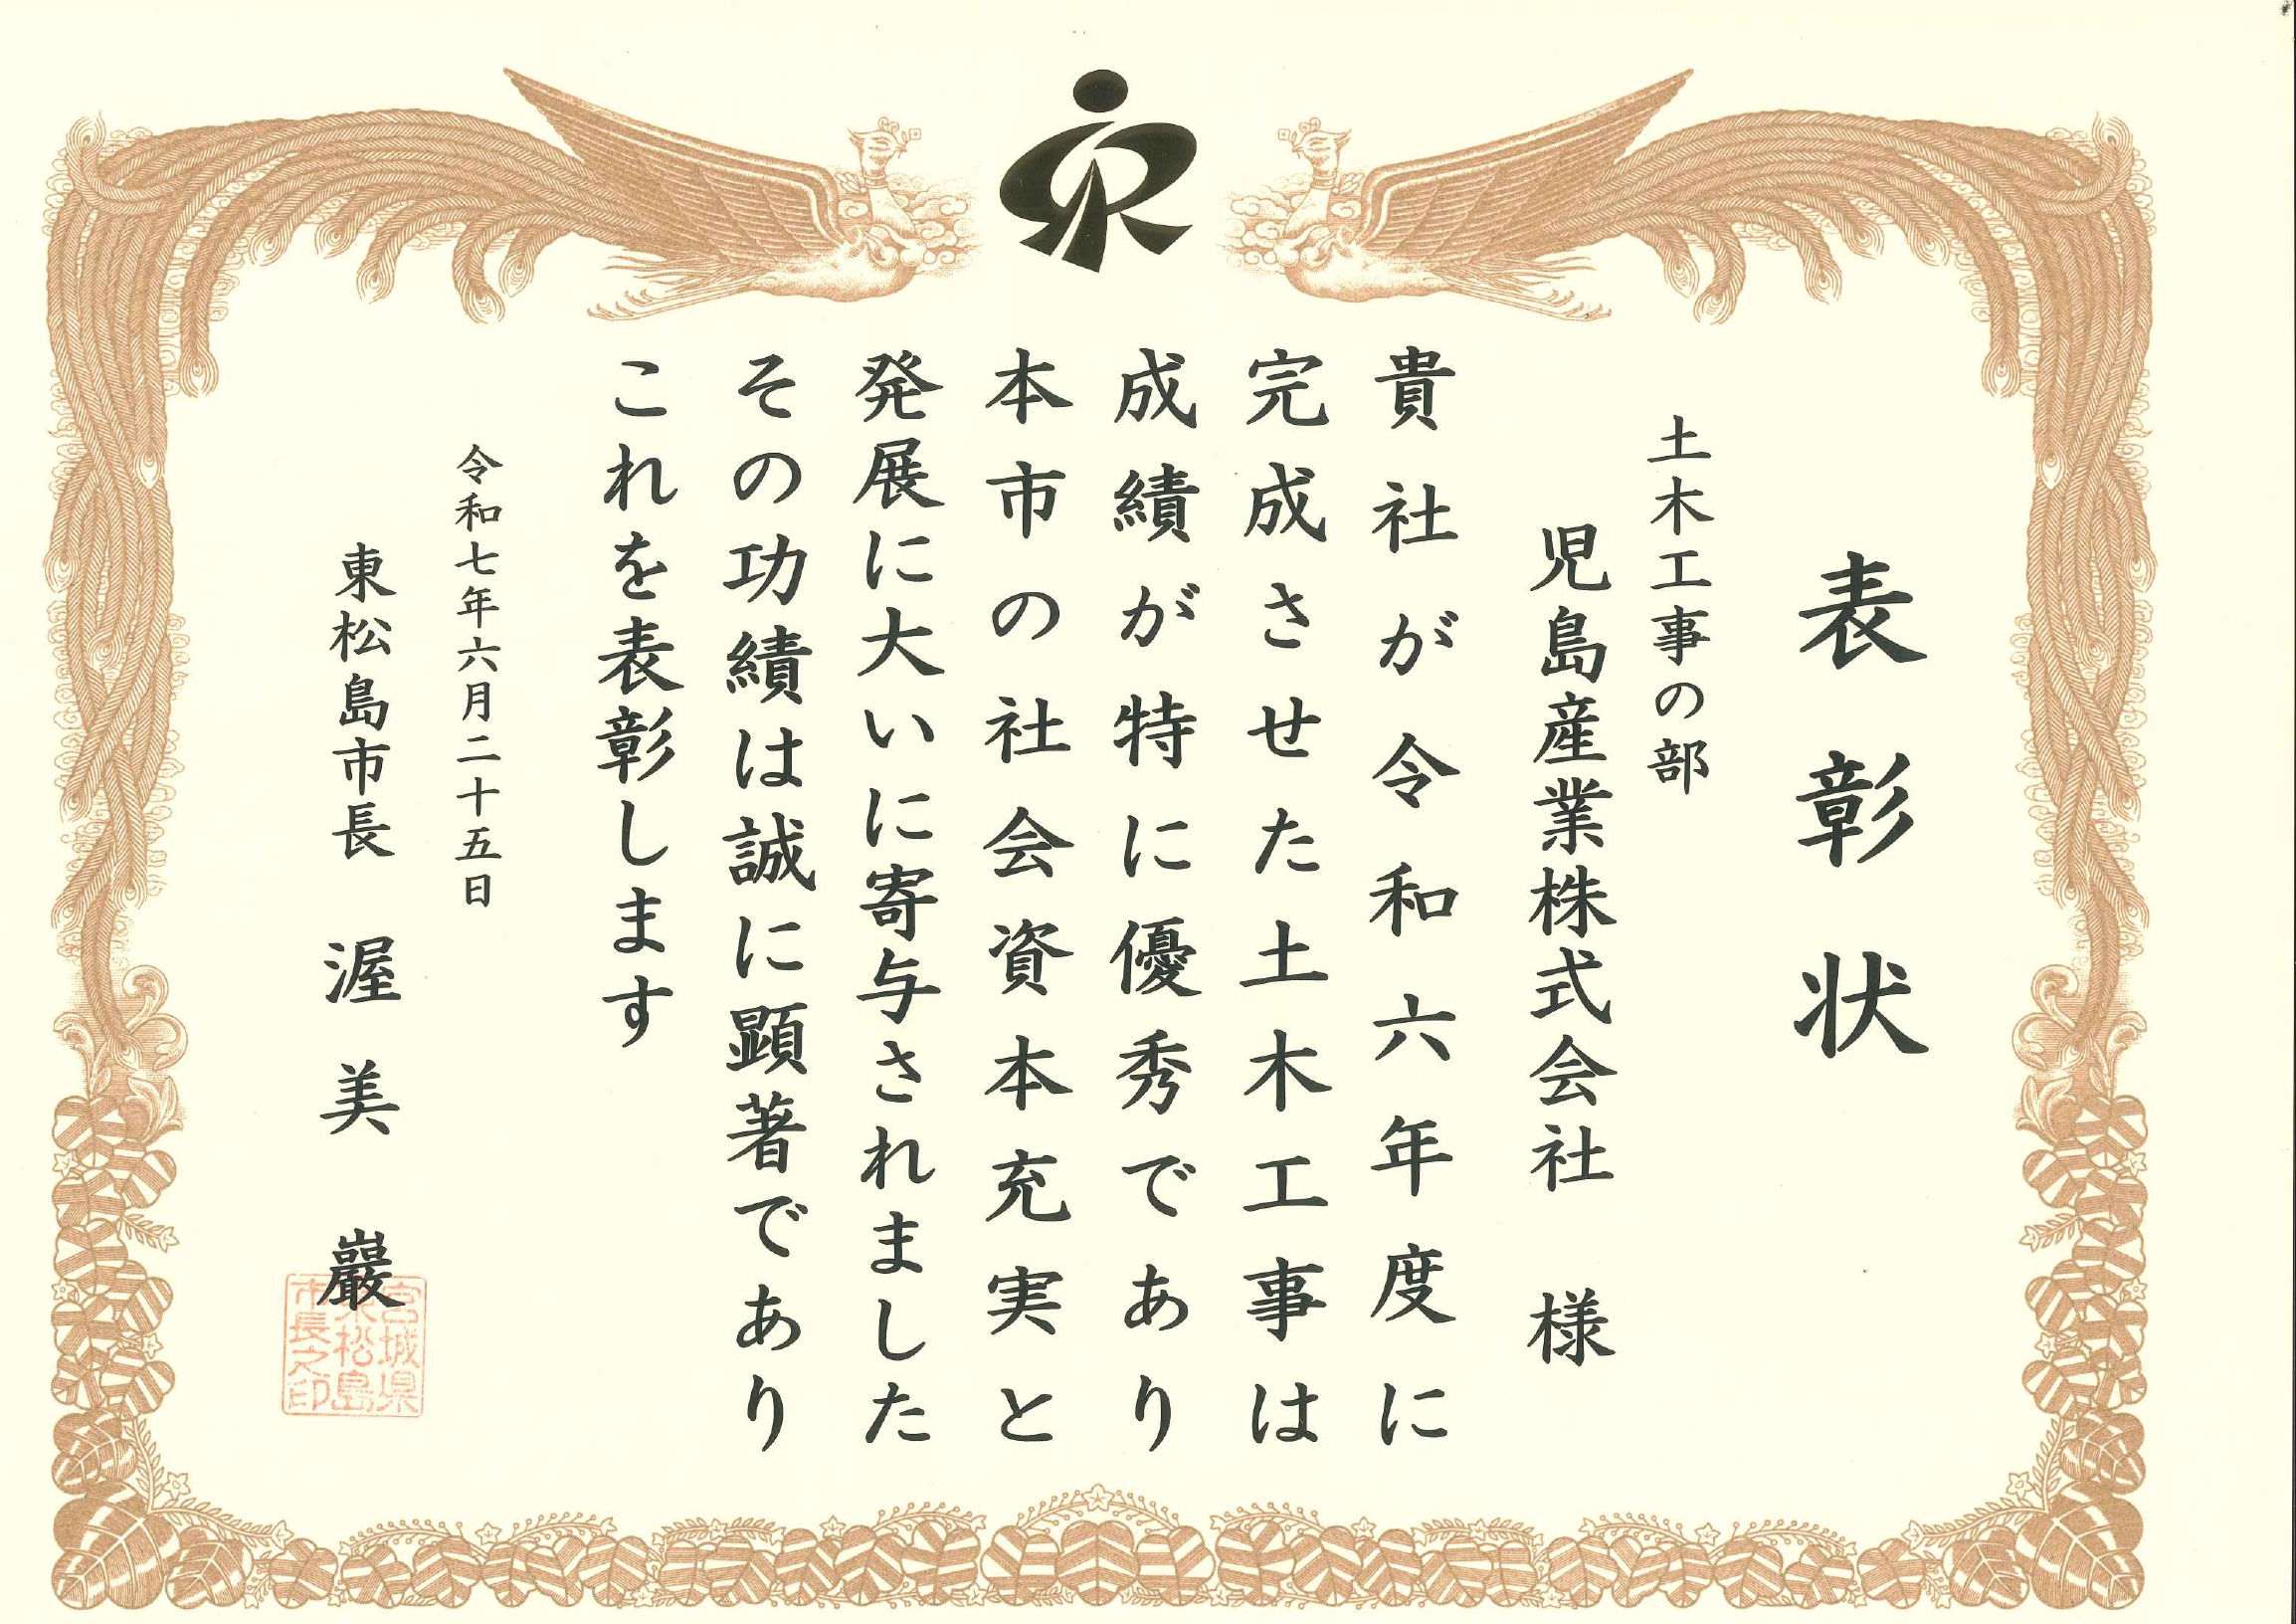 表彰状
土木工事の部
児島産業株式会社 様
貴社が令和六年度に
完成させた土木工事は
成績が特に優秀であり
本市の社会資本充実と
発展に大いに寄与されました
その功績は誠に顕著であり
これを表彰します
令和七年六月二十五日
東松島市長 渥美 巖
宮城県
東松島
市長之印